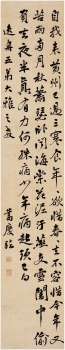 自我來黃州已過三寒食年年欲惜春春去不容惜今年又
苦雨兩月秋蕭瑟卧聞海棠花泥汙燕支雪闇中偷
負去夜半真有力何殊病少年病起頭已白
五弟大雅之屬